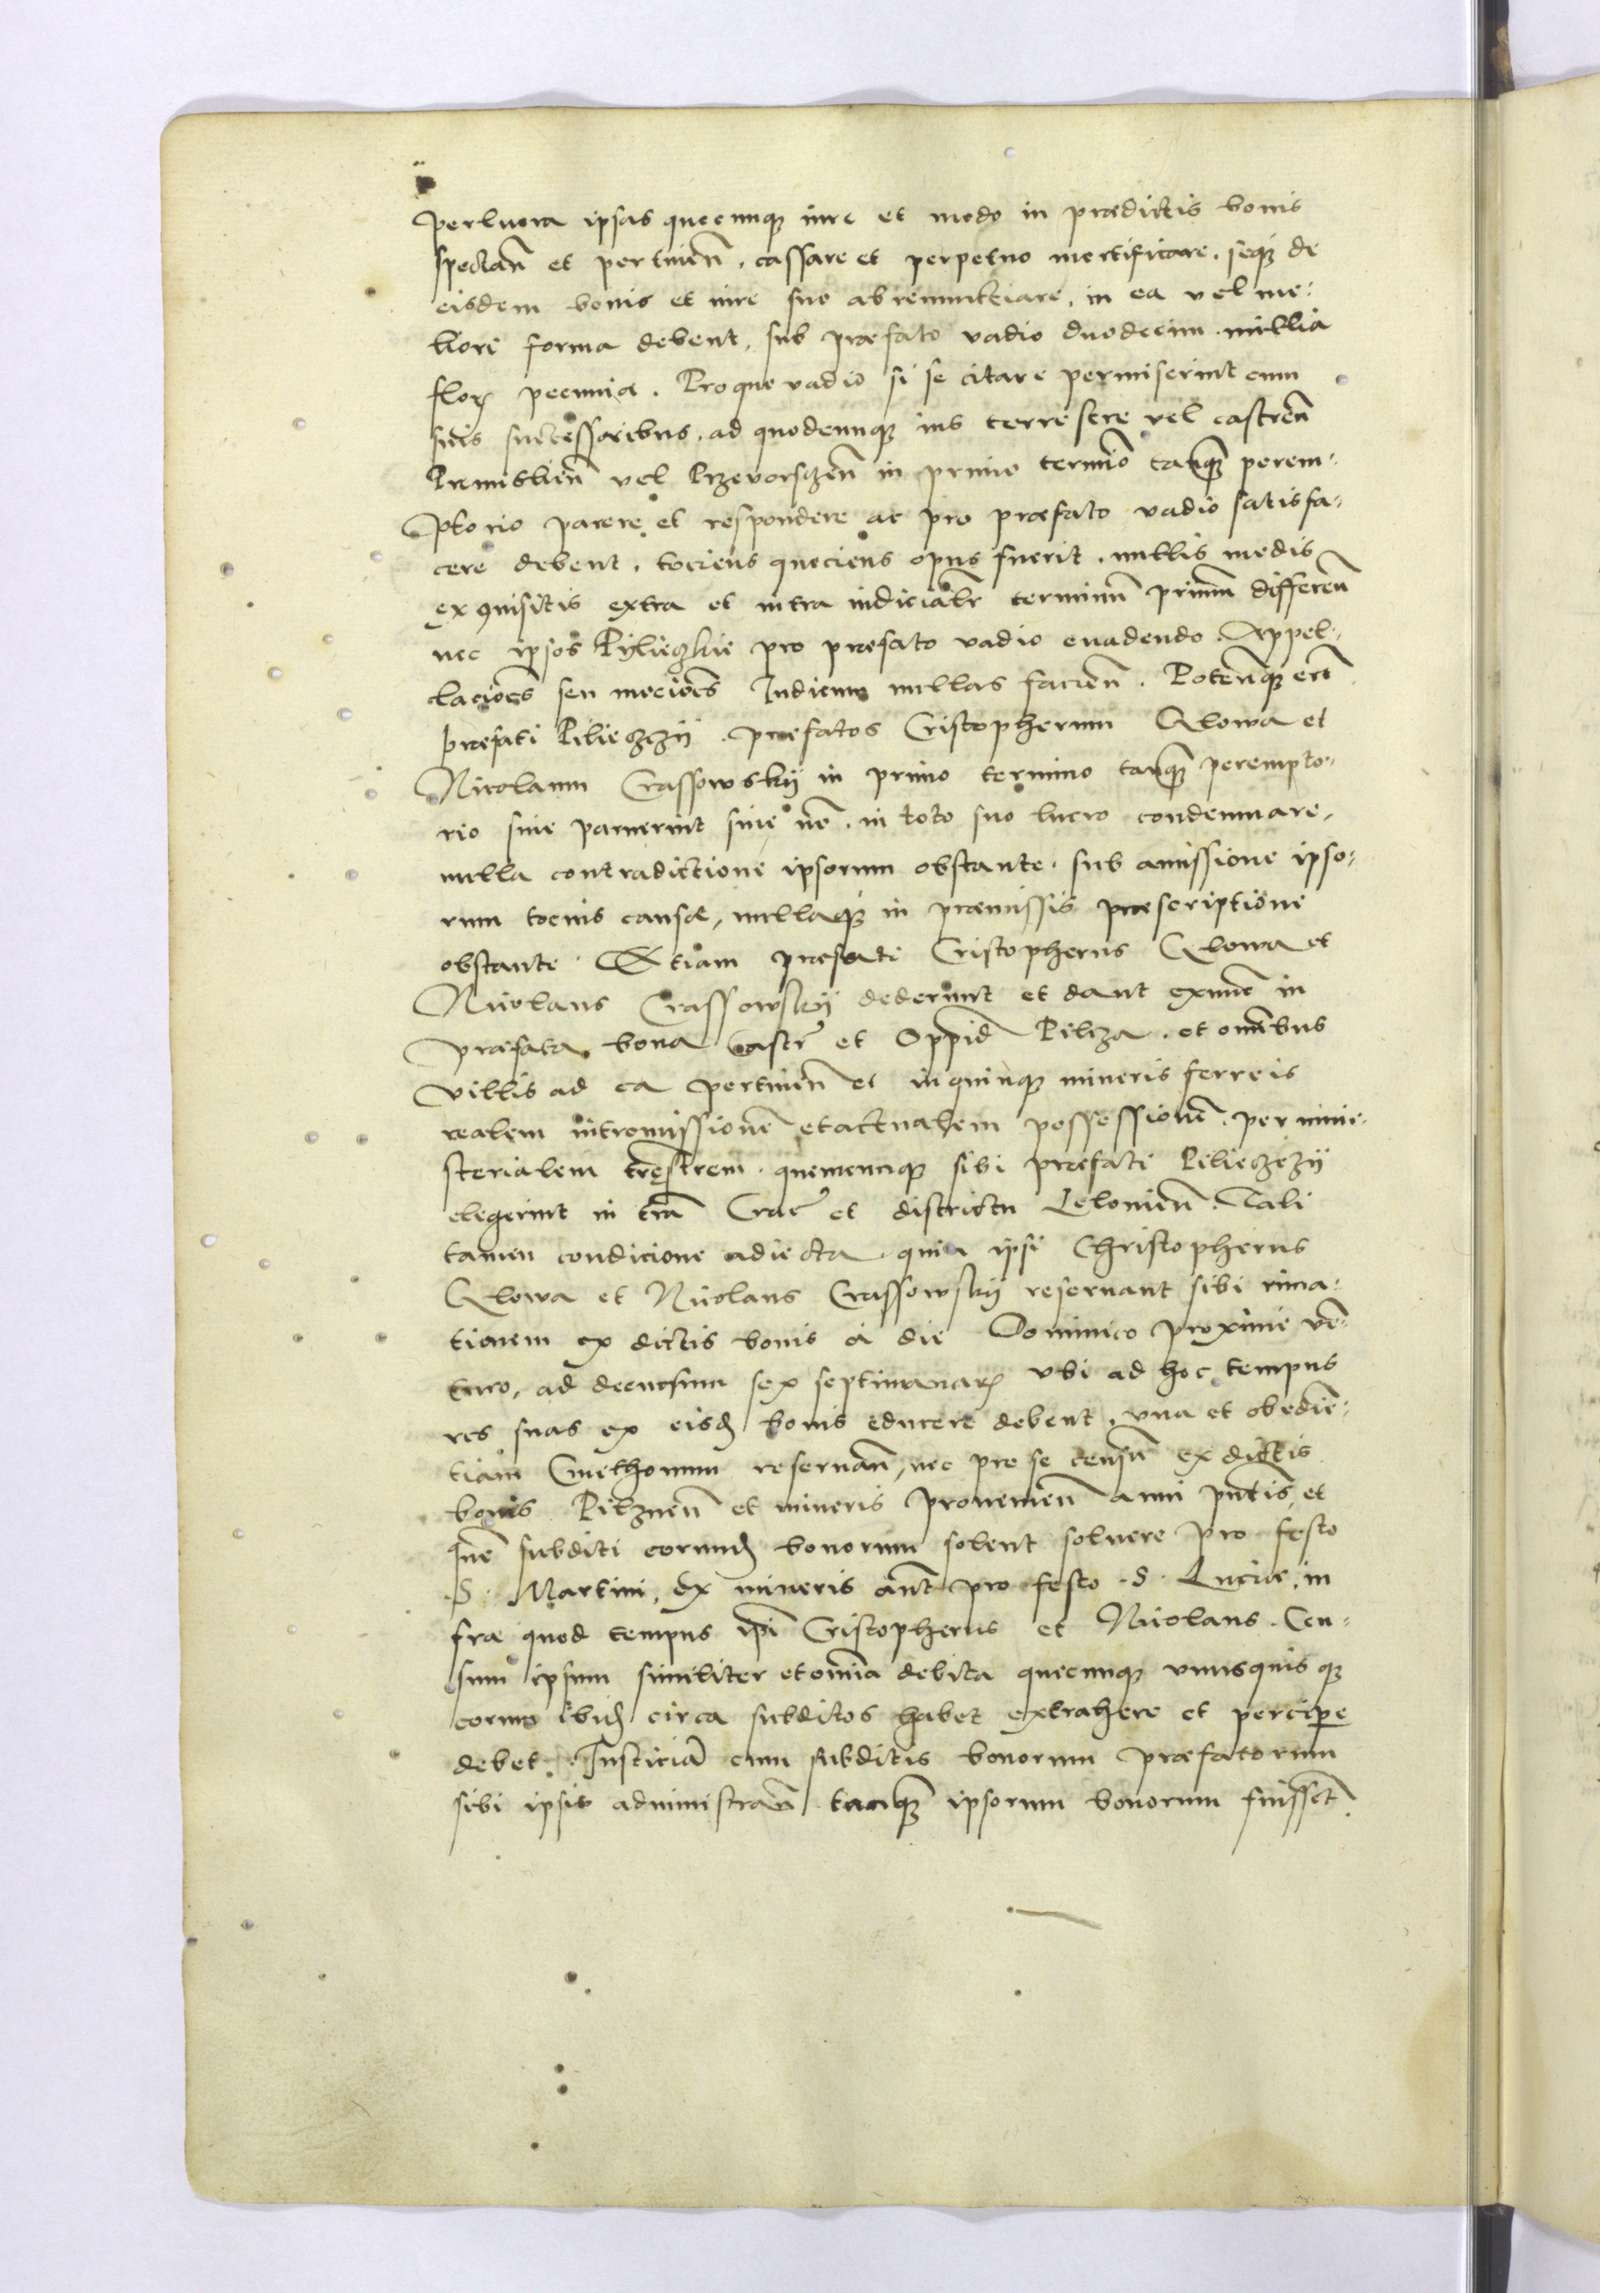 perlucra ipsas quecunq3 iure et modo in prædictis bonis
spectañ et pertineñ, cassare et perpetuo mortificare, seq3 de
eisdem bonis et iure suo abrenuntiare, in ea vel me:
liori forma debent, sub præfato vadio duodecim millia
flor pecunia. Pro quo vadio si se citare permiserint cum
suis successoribus, ad quodcunq3 ius terrestre vel castreñ
Premislieñ vel Przevorsceñ in primo termīo tanq3 perem:
ptorio parere et respondere ac pro præfato vadio satisfa:
cere debent, tociens quociens opus fuerit, nullis modis
exquisitis extra et intra iudicialr terminū primū differeñ
nec ipsos Pylieczkie pro præfato vadio euadendo. Appel:
lacioēs seu mocioēs Iudicum nullas facieñ. Poteñq3 erūt
præfati Pilieczczij præfatos Cristopherum Glowa et
Nicolaum Crassowskij in primo termino tanq3 perempto:
rio siue paruerint siue nō, in toto suo lucro condemnare,
nulla contradictione ipsorum obstante, sub amissione ipso:
rum tocius causæ, nullaq3 in præmissis præscriptione
obstante. Etiam præfati Cristopherus Glowa et
Nicolaus Crassowskij dederunt et dant exnunc in
præfata bona Castr et Oppid Pilcza, et omībus
villis ad ea pertineñ et in quinque mineris ferreis
realem intromissionē et actualem possessionē, per minis:
sterialem trēstrem, quemcunq3 sibi præfati Pilieczczij
elegerint in trā Crac et districtu Leloniensi. Tali
tamen condicione adiecta, quia ipsi Christopherus
Glowa et Nicolaus Crassowskij reseruant sibi
tionem ex dictis bonis a die Dominico proxime vē:
turo, ad decursum sex septimanar vbi ad hoc tempus
res suas ex eisd bonis educere debent, vna et obediē:
tiam Cmethonum reseruañ, nec pro se censū ex dictis
bonis Pilzneñ et mineris proueniēñ anni pñtis, et
quē subditi eorund bonorum solent soluere pro festo
S. Martini, Ex mineris aūt pro festo S. Luciæ, in
fra quod tempus ipi Cristopherus et Nicolaus Cen:
sum ipsum similiter et omīa debita quecunq3 vnusquisq3
eorum ibid circa subditos habet extrahere et percipere
debet. Iusticiā cum subditis bonorum præfatorum
sibi ipsis administrañ tanq3 ipsorum bonorum fuissēt